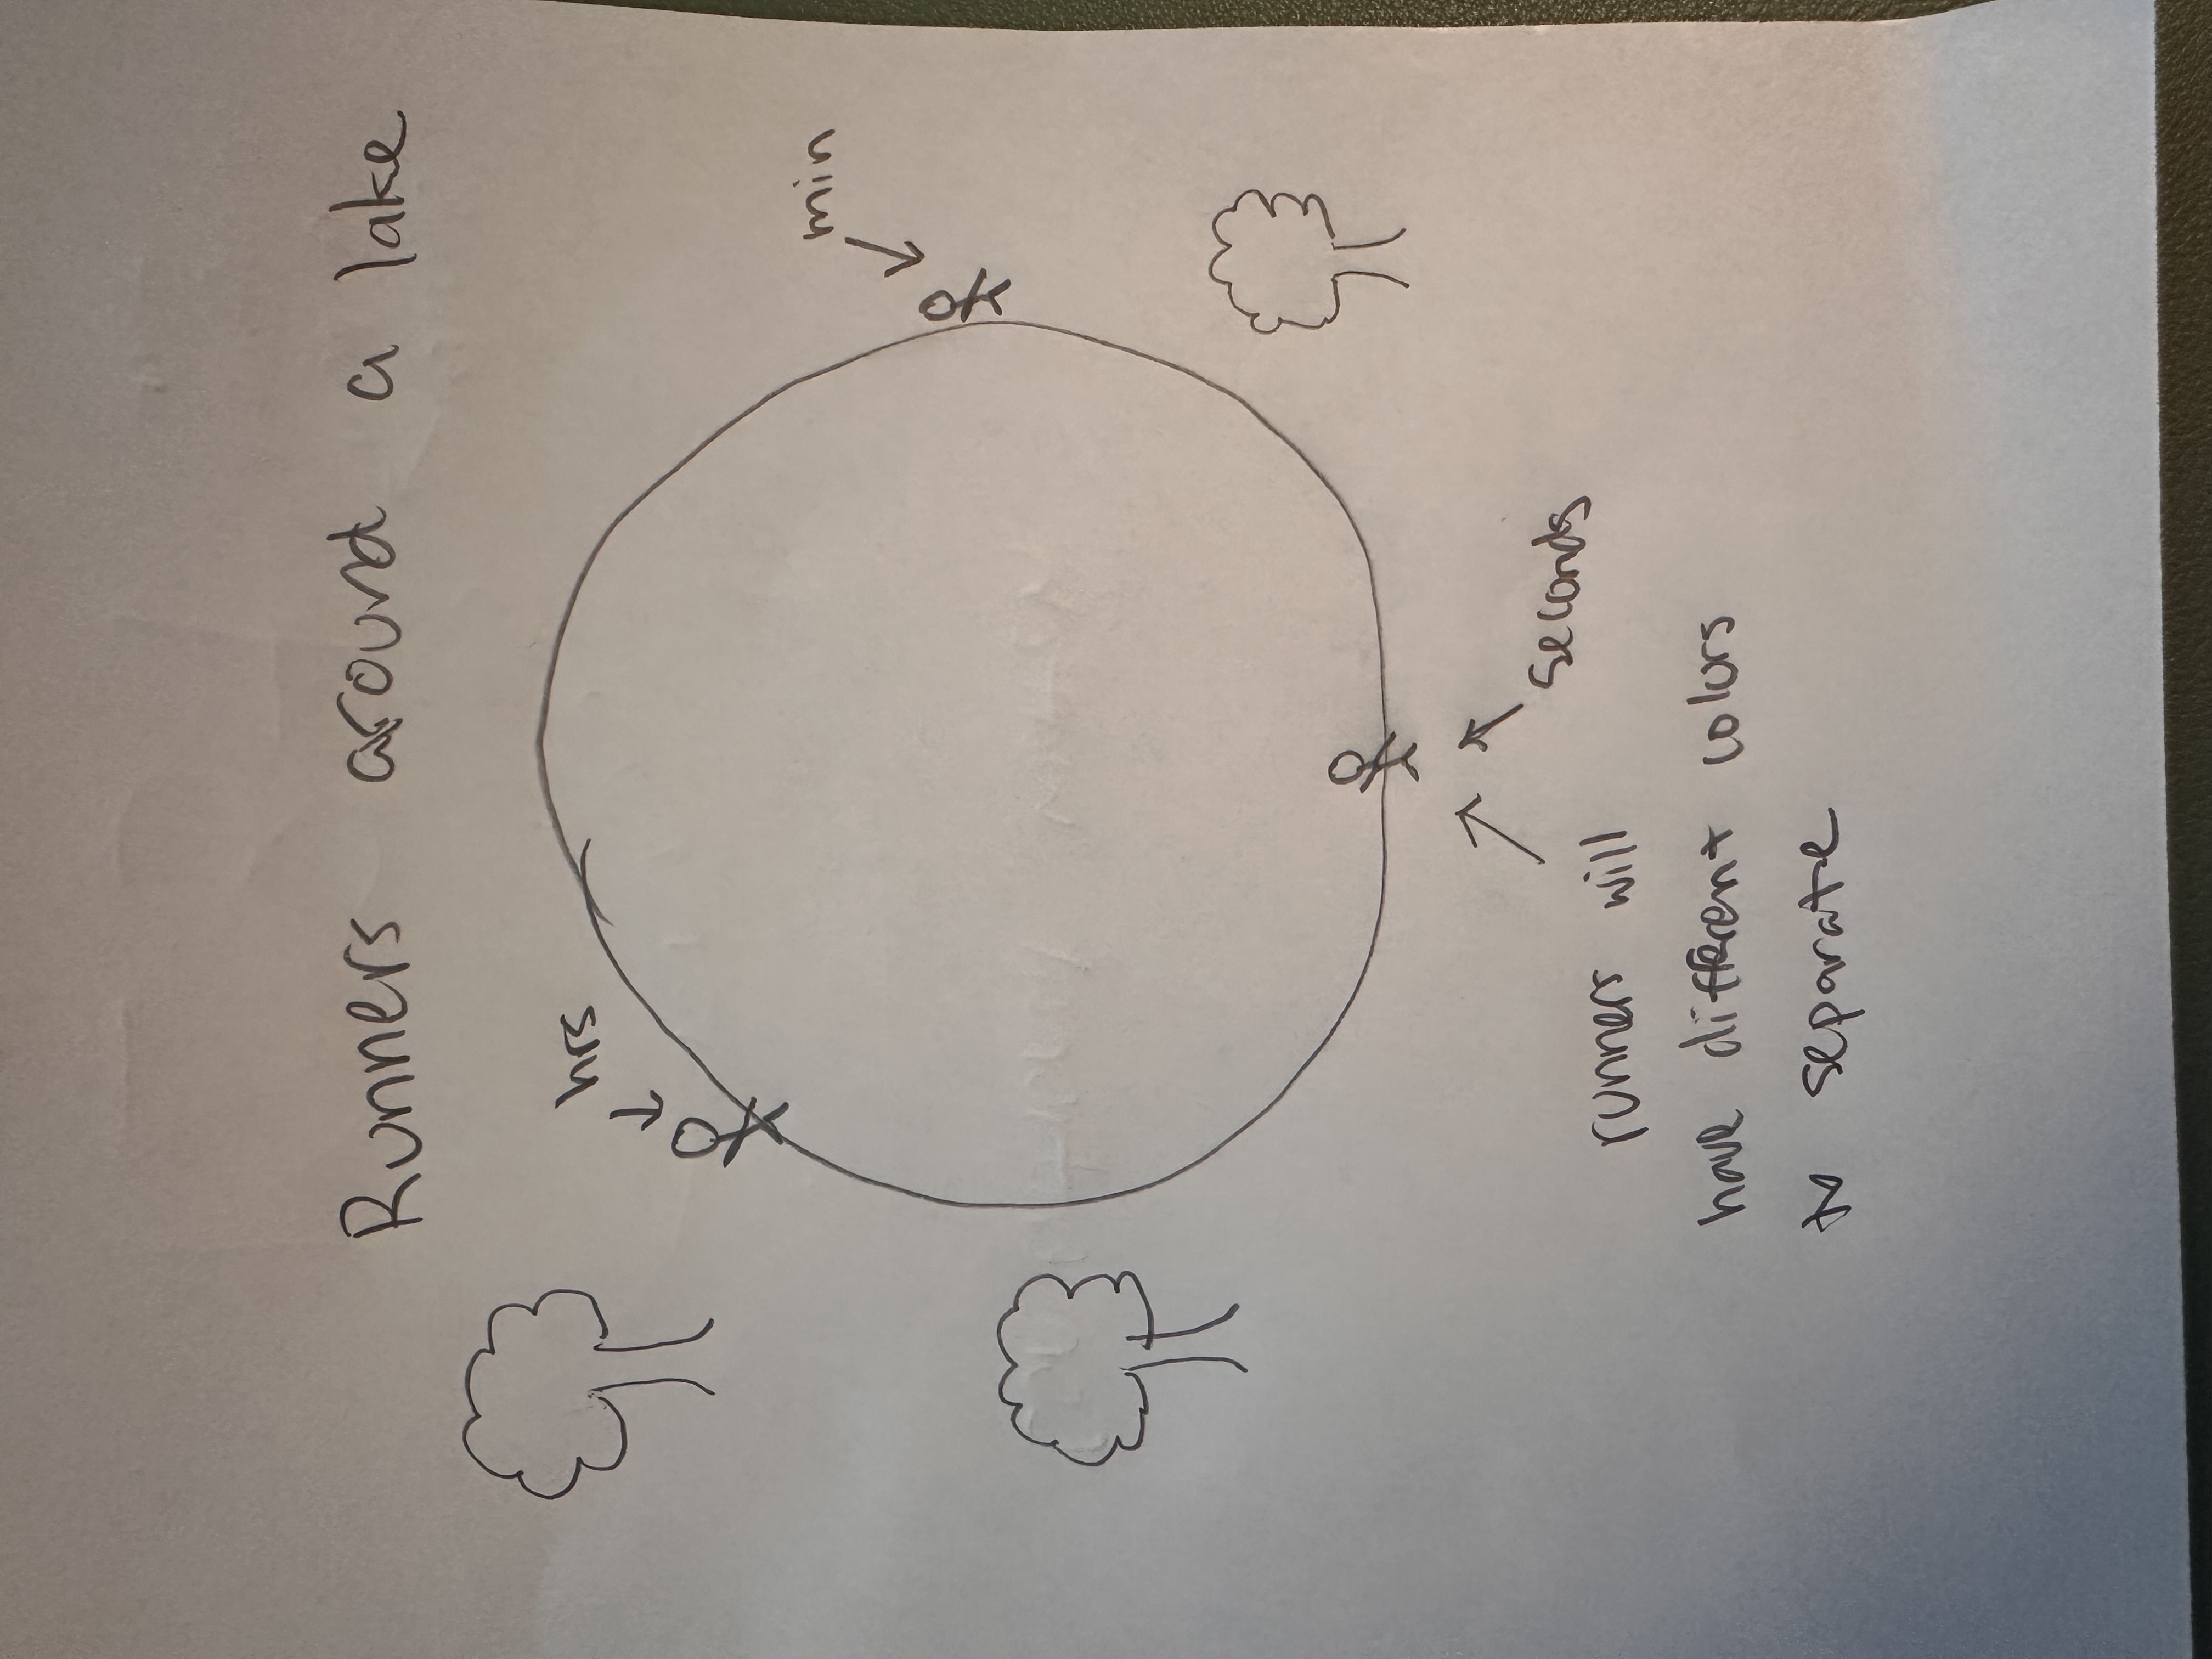 Runners around a lake
hrs
min
seconds
runners will
have different colors
to separate